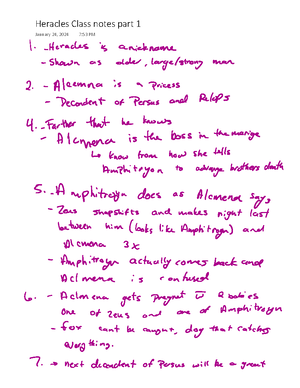 Heracles Class notes part 1
January 26, 2024 7:53 PM
1. - Heracles is a nickname
- Shown as older, large/strong man
2. - Alcemna is a Pricess
- Decendent of Persus and Pelops
4. - Farther that he knows
- Alcmena is the boss in the marige
↳ know from how she tells
Amphitryon to avenge brothers death
5. - Amphitroyn does as Alcmena says,
- Zeus shapshifts and makes night last
between him (looks like Amphitroyn) and
Alcmena 3x
- Amphitroyn actually comes back and
Alcmena is confused
6. - Alcmena gets pregnet w 2 babies
one of Zeus and one of Amphitroyn
- fox cant be caught, dog that catches
everything.
7. → next decendent of Persus will be a great